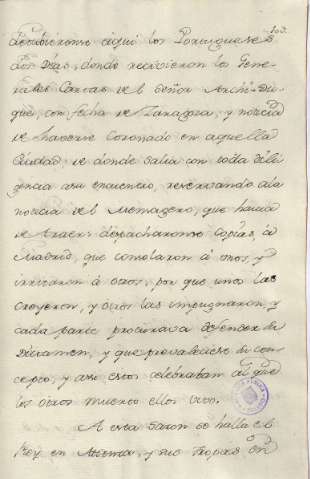 103.
aqui los Portugueses
dos Dias, donde recivieron los Gene-
rales Cartas de el Señor Archi-Du-
que, con fecha de Zaragoza, y noticia
de haverse Coronado en aquella
Ciudad, de donde salia con toda dili-
gencia a su encuentro, reservando a la
noticia de el Mensagero, que havia
de traer: despacharonse copias, à
Madrid, que consolaron à unos, y
irritaron à otros, por que unos las
creyeron, y otros las impugnaron, y
cada parte procurava defender su
Dictamen, y que prevaleciese su con-
cepto, y asi estos celebraban al que
los otros muerto ellos vivo.
A esta sazon se halla el
Rey en y sus tropas en